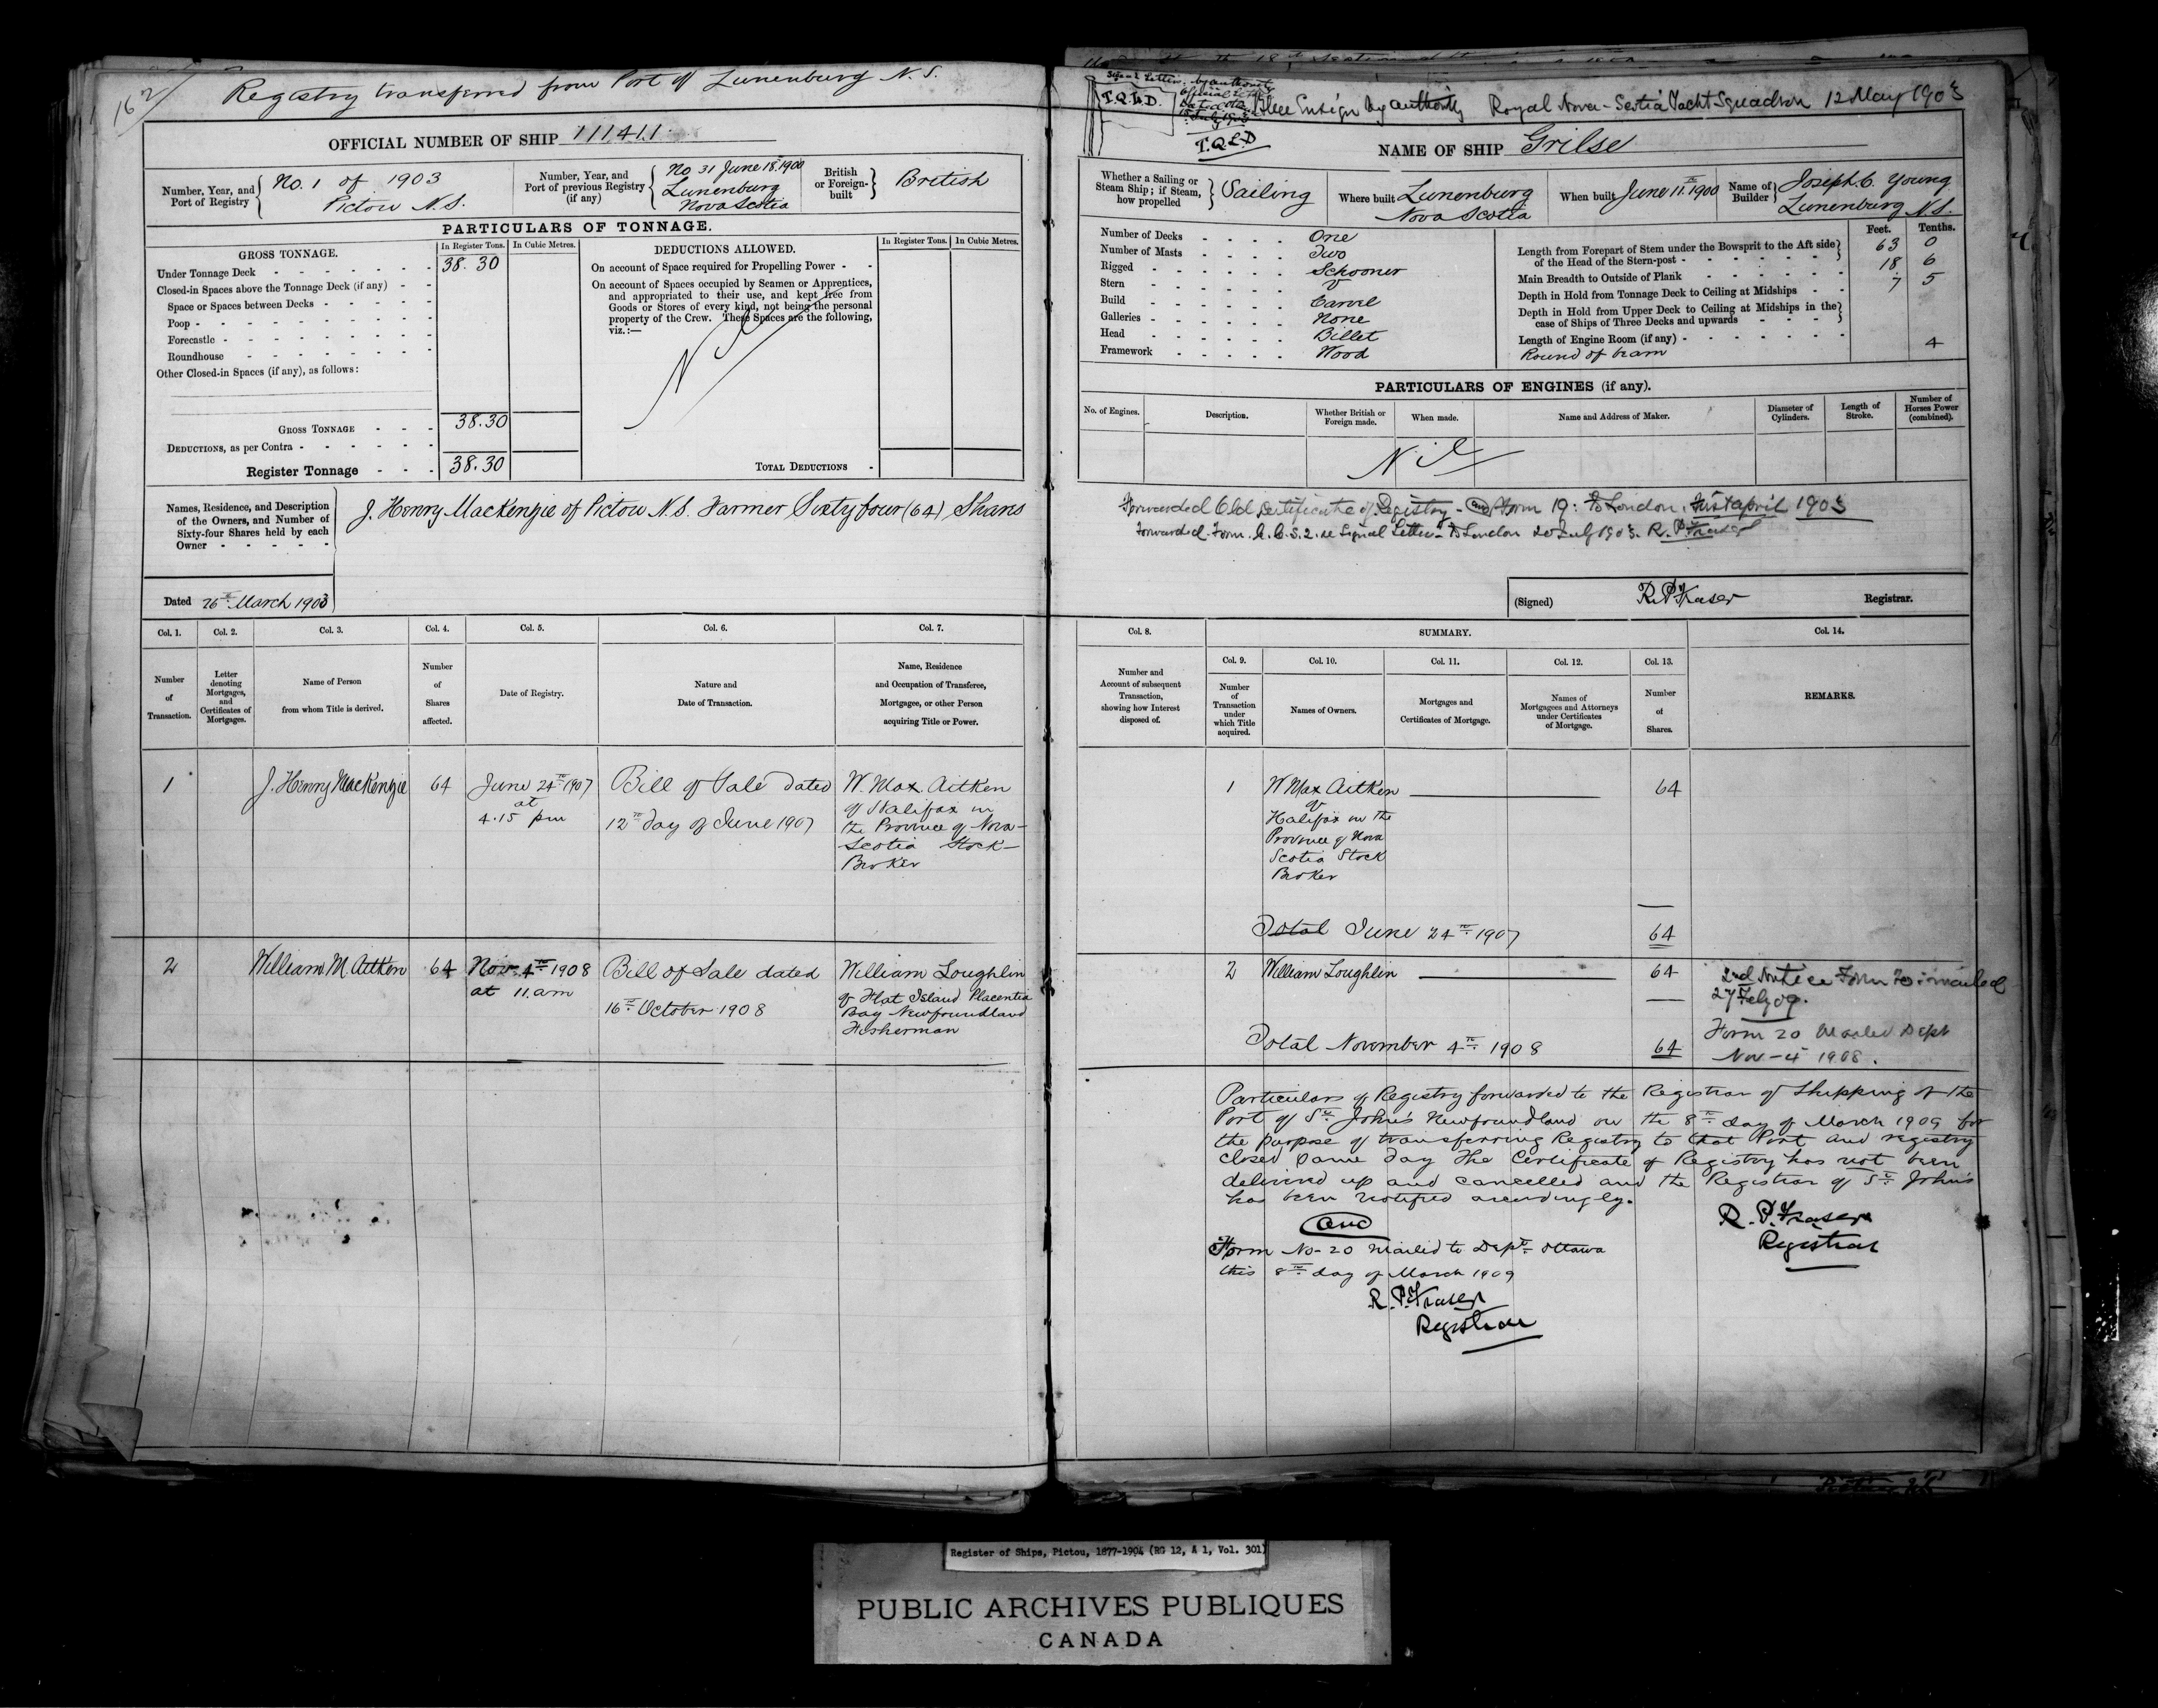 162
Registry transferred from Port of Lunenburg N.S.
OFFICIAL NUMBER OF SHIP 111411
Number, Year, and Port of Registry
No. 1 of 1903
Pictou N.S.
Number, Year, and Port of previous Registry (if any)
No 31 June 18th 1900
Lunenburg
Nova Scotia
British or Foreign-built
British
PARTICULARS OF TONNAGE.
GROSS TONNAGE.
In Register Tons.
In Cubic Metres.
Under Tonnage Deck 38.30
Closed-in Spaces above the Tonnage Deck (if any)
Space or Spaces between Decks
Poop
Forecastle
Roundhouse
Other Closed-in Spaces (if any), as follows:
GROSS TONNAGE 38.30
DEDUCTIONS, as per Contra
Register Tonnage 38.30
DEDUCTIONS ALLOWED.
In Register Tons.
In Cubic Metres.
On account of Space required for Propelling Power
On account of Spaces occupied by Seamen or Apprentices,
and appropriated to their use, and kept free from
Goods or Stores of every kind, not being the personal
property of the Crew. These Spaces are the following,
viz.:—
Nil
TOTAL DEDUCTIONS
Names, Residence, and Description
of the Owners, and Number of
Sixty-four Shares held by each
Owner
J. Henry MacKenzie of Pictou N.S. Farmer Sixty four (64) Shares
Dated 26th March 1903
Col. 1.
Number of Transaction.
Col. 2.
Letter denoting Mortgages, and Certificates of Mortgages.
Col. 3.
Name of Person from whom Title is derived.
Col. 4.
Number of Shares affected.
Col. 5.
Date of Registry.
Col. 6.
Nature and Date of Transaction.
Col. 7.
Name, Residence and Occupation of Transferee, Mortgagee, or other Person acquiring Title or Power.
1
J. Henry MacKenzie
64
June 24th 1907
at
4.15 pm
Bill of Sale dated
12th day of June 1907
W. Max Aitken
of Halifax in
the Province of Nova-
Scotia Stock-
Broker
2
William M. Aitken
64
Nov. 4th 1908
at 11. am
Bill of Sale dated
16th October 1908
William Loughlin
of Flat Island Placentia
Bay Newfoundland
Fisherman
Signal Letters by authority
T.Q.L.D.
T.Q.L.D
Blue Ensign by authority Royal Nova-Scotia Yacht Squadron 12 May 1903
NAME OF SHIP Grilse
Whether a Sailing or Steam Ship; if Steam, how propelled
Sailing
Where built Lunenburg
Nova Scotia
When built June 11th 1900
Name of Builder
Joseph C. Young
Lunenburg N.S.
Number of Decks One
Number of Masts Two
Rigged Schooner
Stern V
Build Carvel
Galleries None
Head Billet
Framework Wood
Feet. Tenths.
Length from Forepart of Stem under the Bowsprit to the Aft side
of the Head of the Stern-post 63 0
Main Breadth to Outside of Plank 18 6
Depth in Hold from Tonnage Deck to Ceiling at Midships 7 5
Depth in Hold from Upper Deck to Ceiling at Midships in the
case of Ships of Three Decks and upwards
Length of Engine Room (if any)
Round of beam 4
PARTICULARS OF ENGINES (if any).
No. of Engines.
Description.
Whether British or Foreign made.
When made.
Name and Address of Maker.
Diameter of Cylinders.
Length of Stroke.
Number of Horses Power (combined).
Nil
Forwarded Old Certificate of Registry - and Form 19: To London. First April 1903
Forwarded. Form. S. 2. re Signal Letters - To London 20 July 1903. R. P. Fraser
(Signed) R. P. Fraser Registrar.
Col. 8.
Number and Account of subsequent Transaction, showing how Interest disposed of.
SUMMARY.
Col. 9.
Number of Transaction under which Title acquired.
Col. 10.
Names of Owners.
Col. 11.
Mortgages and Certificates of Mortgage.
Col. 12.
Names of Mortgagees and Attorneys under Certificates of Mortgage.
Col. 13.
Number of Shares.
Col. 14.
REMARKS.
1
W Max Aitken 64
of
Halifax in the
Province of Nova
Scotia Stock
Broker
Total June 24th 1907 64
2
William Loughlin 64
2nd Notice Form 20 mailed
27 Feby 09.
Total November 4th 1908 64
Form 20 Mailed Dept
Nov - 4 1908.
Particulars of Registry forwarded to the Registrar of Shipping at the
Port of St. John's Newfoundland on the 8th day of March 1909 for
the purpose of transferring Registry to that Port and registry
closed same day The Certificate of Registry has not been
delivered up and cancelled and the Registrar of St. John's
has been notified accordingly.
R. P. Fraser
Registrar
and
Form No- 20 mailed to Dept. Ottawa
this 8th day of March 1909
R. P. Fraser
Registrar
Register of Ships, Pictou, 1877-1904 (RG 12, A 1, Vol. 301)
PUBLIC ARCHIVES PUBLIQUES
CANADA